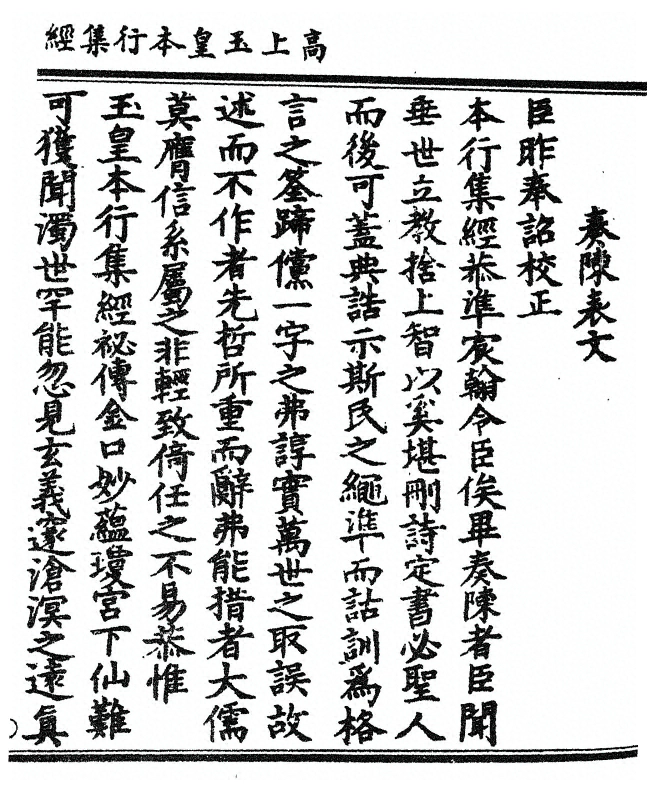 高上玉皇本行集經
奏陳表文
臣昨奉詔校正
本行集經恭準宸翰令臣俟畢奏陳者臣聞
垂世立教捨上智以奚堪刪詩定書必聖人
而後可蓋典誥示斯民之繩準而詁訓為格
言之筌蹄儻一字之弗諄實萬世之取誤故
述而不作者先哲所重而辭弗能措者大儒
莫膺信系屬之非輕致倚任之不易恭惟
玉皇本行集經祕傳金口妙蘊瓊宮下仙難
可獲聞濁世罕能忽見玄義邃滄溟之遠真